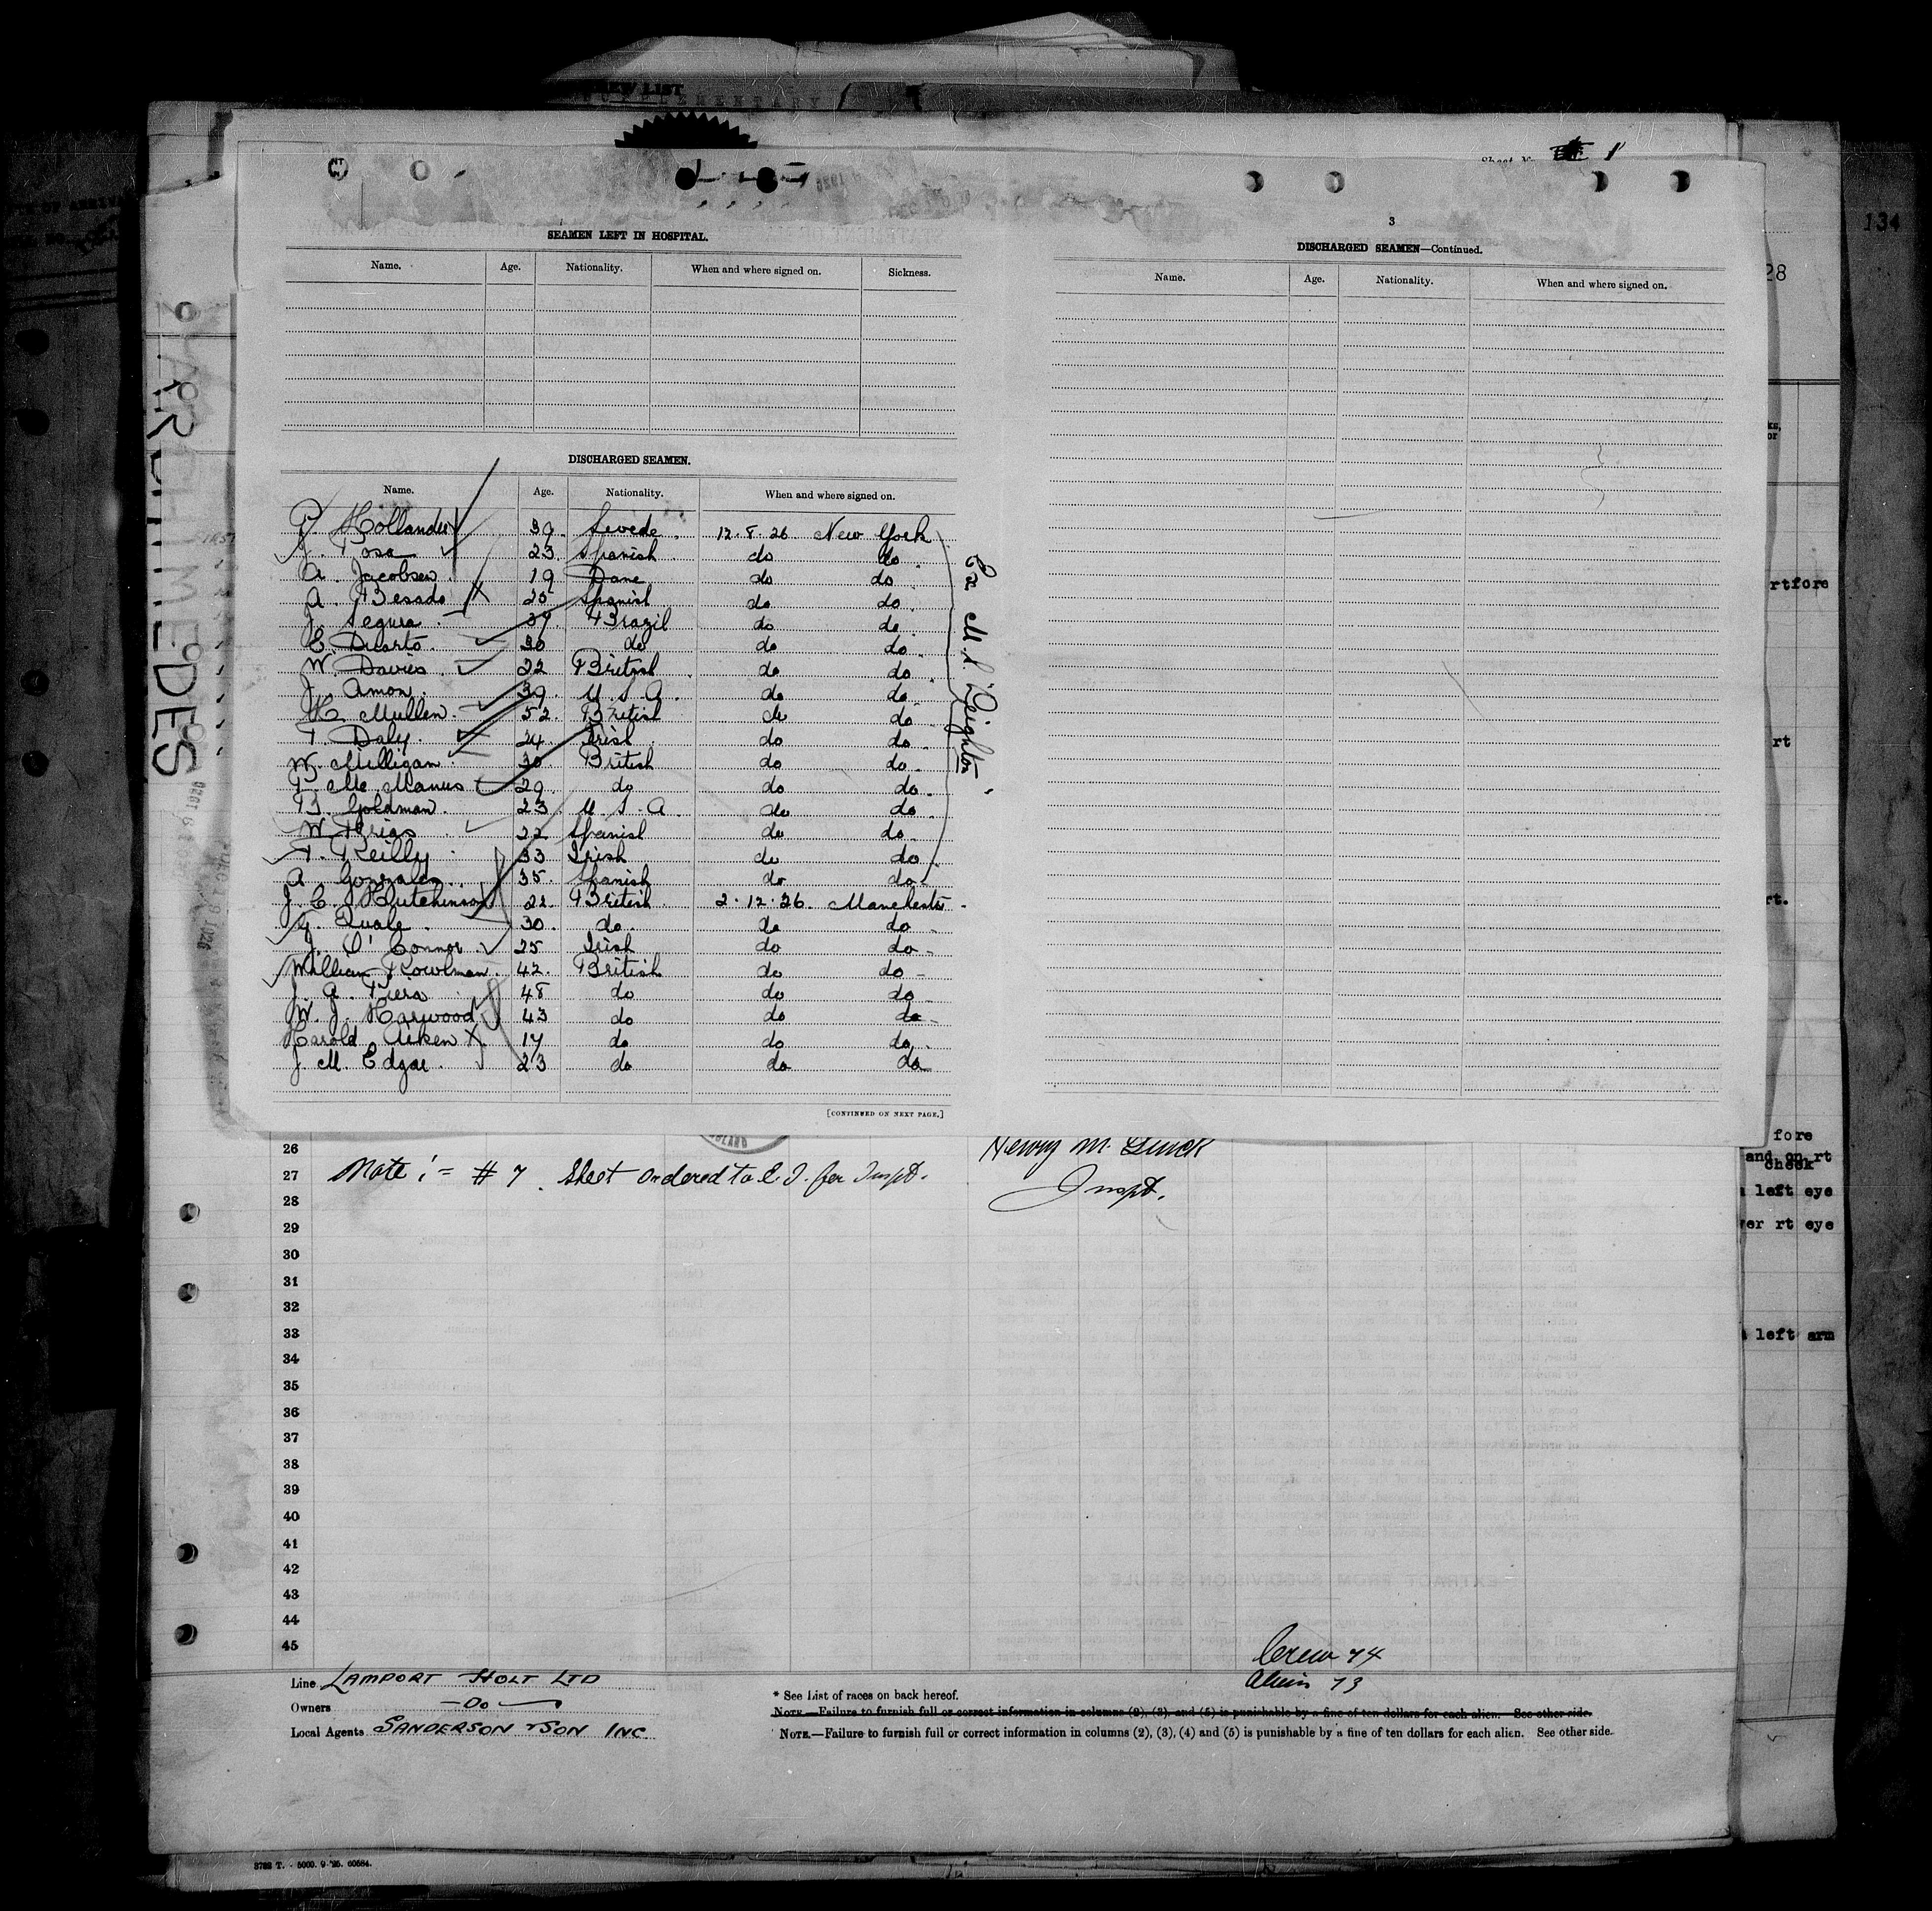 CREW LIST
Sheet No. 1
134
28
ARCHIMEDES
SEAMEN LEFT IN HOSPITAL.
Name. Age. Nationality. When and where signed on. Sickness.
DISCHARGED SEAMEN.
Name. Age. Nationality. When and where signed on.
P. Hollander 39. Swede. 12.8.26 New York
J. Posa 23. Spanish. do do.
A. Jacobsen. 19 Dane do do.
A. Besada 25 Spanish do do.
J. Segura. 37. Brazil do do.
E. Duarto. 30 do do do.
W. Davies. 22 British. do do.
J. Amon. 39. U.S.A. do do.
H. Mullen. 52. British do do.
T. Daly. 24 Irish. do do.
W. Milligan. 30 British do do.
P. Mc Manus 29. do do do.
B. Goldman. 23. U.S.A. do do.
W. 22 Spanish do do.
T. Reilly. 33 Irish do do.
A. Gonzales. 35. Spanish do do.
J. C. Hutchinson 22. British. 2.12.26. Manchester.
G. Quale. 30. do. do do.
J. O'Connor. 25 Irish do do.
William Rowlman. 42. British do do.
J. A. 48 do do do.
W. J. Harwood 43 do do do.
Harold Aiken X 17 do do do.
J. M. Edgar. 23 do do do
Ex M.S. "Deighton"
[CONTINUED ON NEXT PAGE.]
3
DISCHARGED SEAMEN—Continued.
Name. Age. Nationality. When and where signed on.
rtfore
rt
rt.
fore
and on rt
cheek
left eye
ver rt eye
left arm
26
27 Note:- # 7. Sheet ordered to E.I. for Inspt.
Henry M.
Inspt.
28
29
30
31
32
33
34
35
36
37
38
39
40
41
42
43
44
45
Crew 74
Alien 73
Line LAMPORT HOLT LTD
Owners —Do—
Local Agents SANDERSON & SON INC.
* See List of races on back hereof.
NOTE.—Failure to furnish full or correct information in columns (2), (3), and (5) is punishable by a fine of ten dollars for each alien. See other side.
NOTE.—Failure to furnish full or correct information in columns (2), (3), (4) and (5) is punishable by a fine of ten dollars for each alien. See other side.
3782 T. - 5000. 9-'25. 60584.